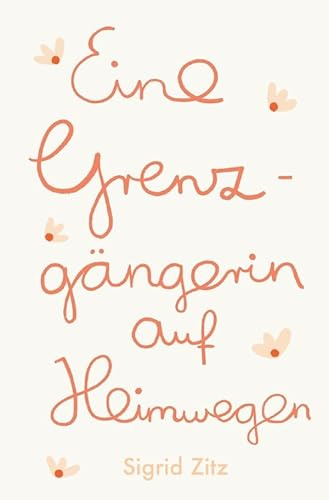 Eine
Grenz-
gängerin
auf
Heimwegen
Sigrid Zitz